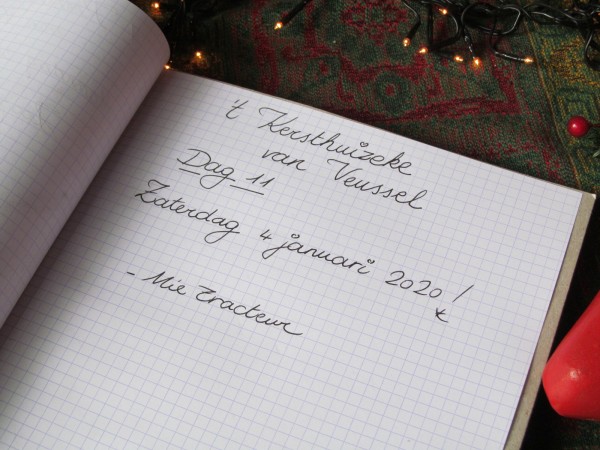 't Kersthuizeke
van Veussel
Dag 11
Zaterdag 4 januari 2020!
- Mie Tracteur